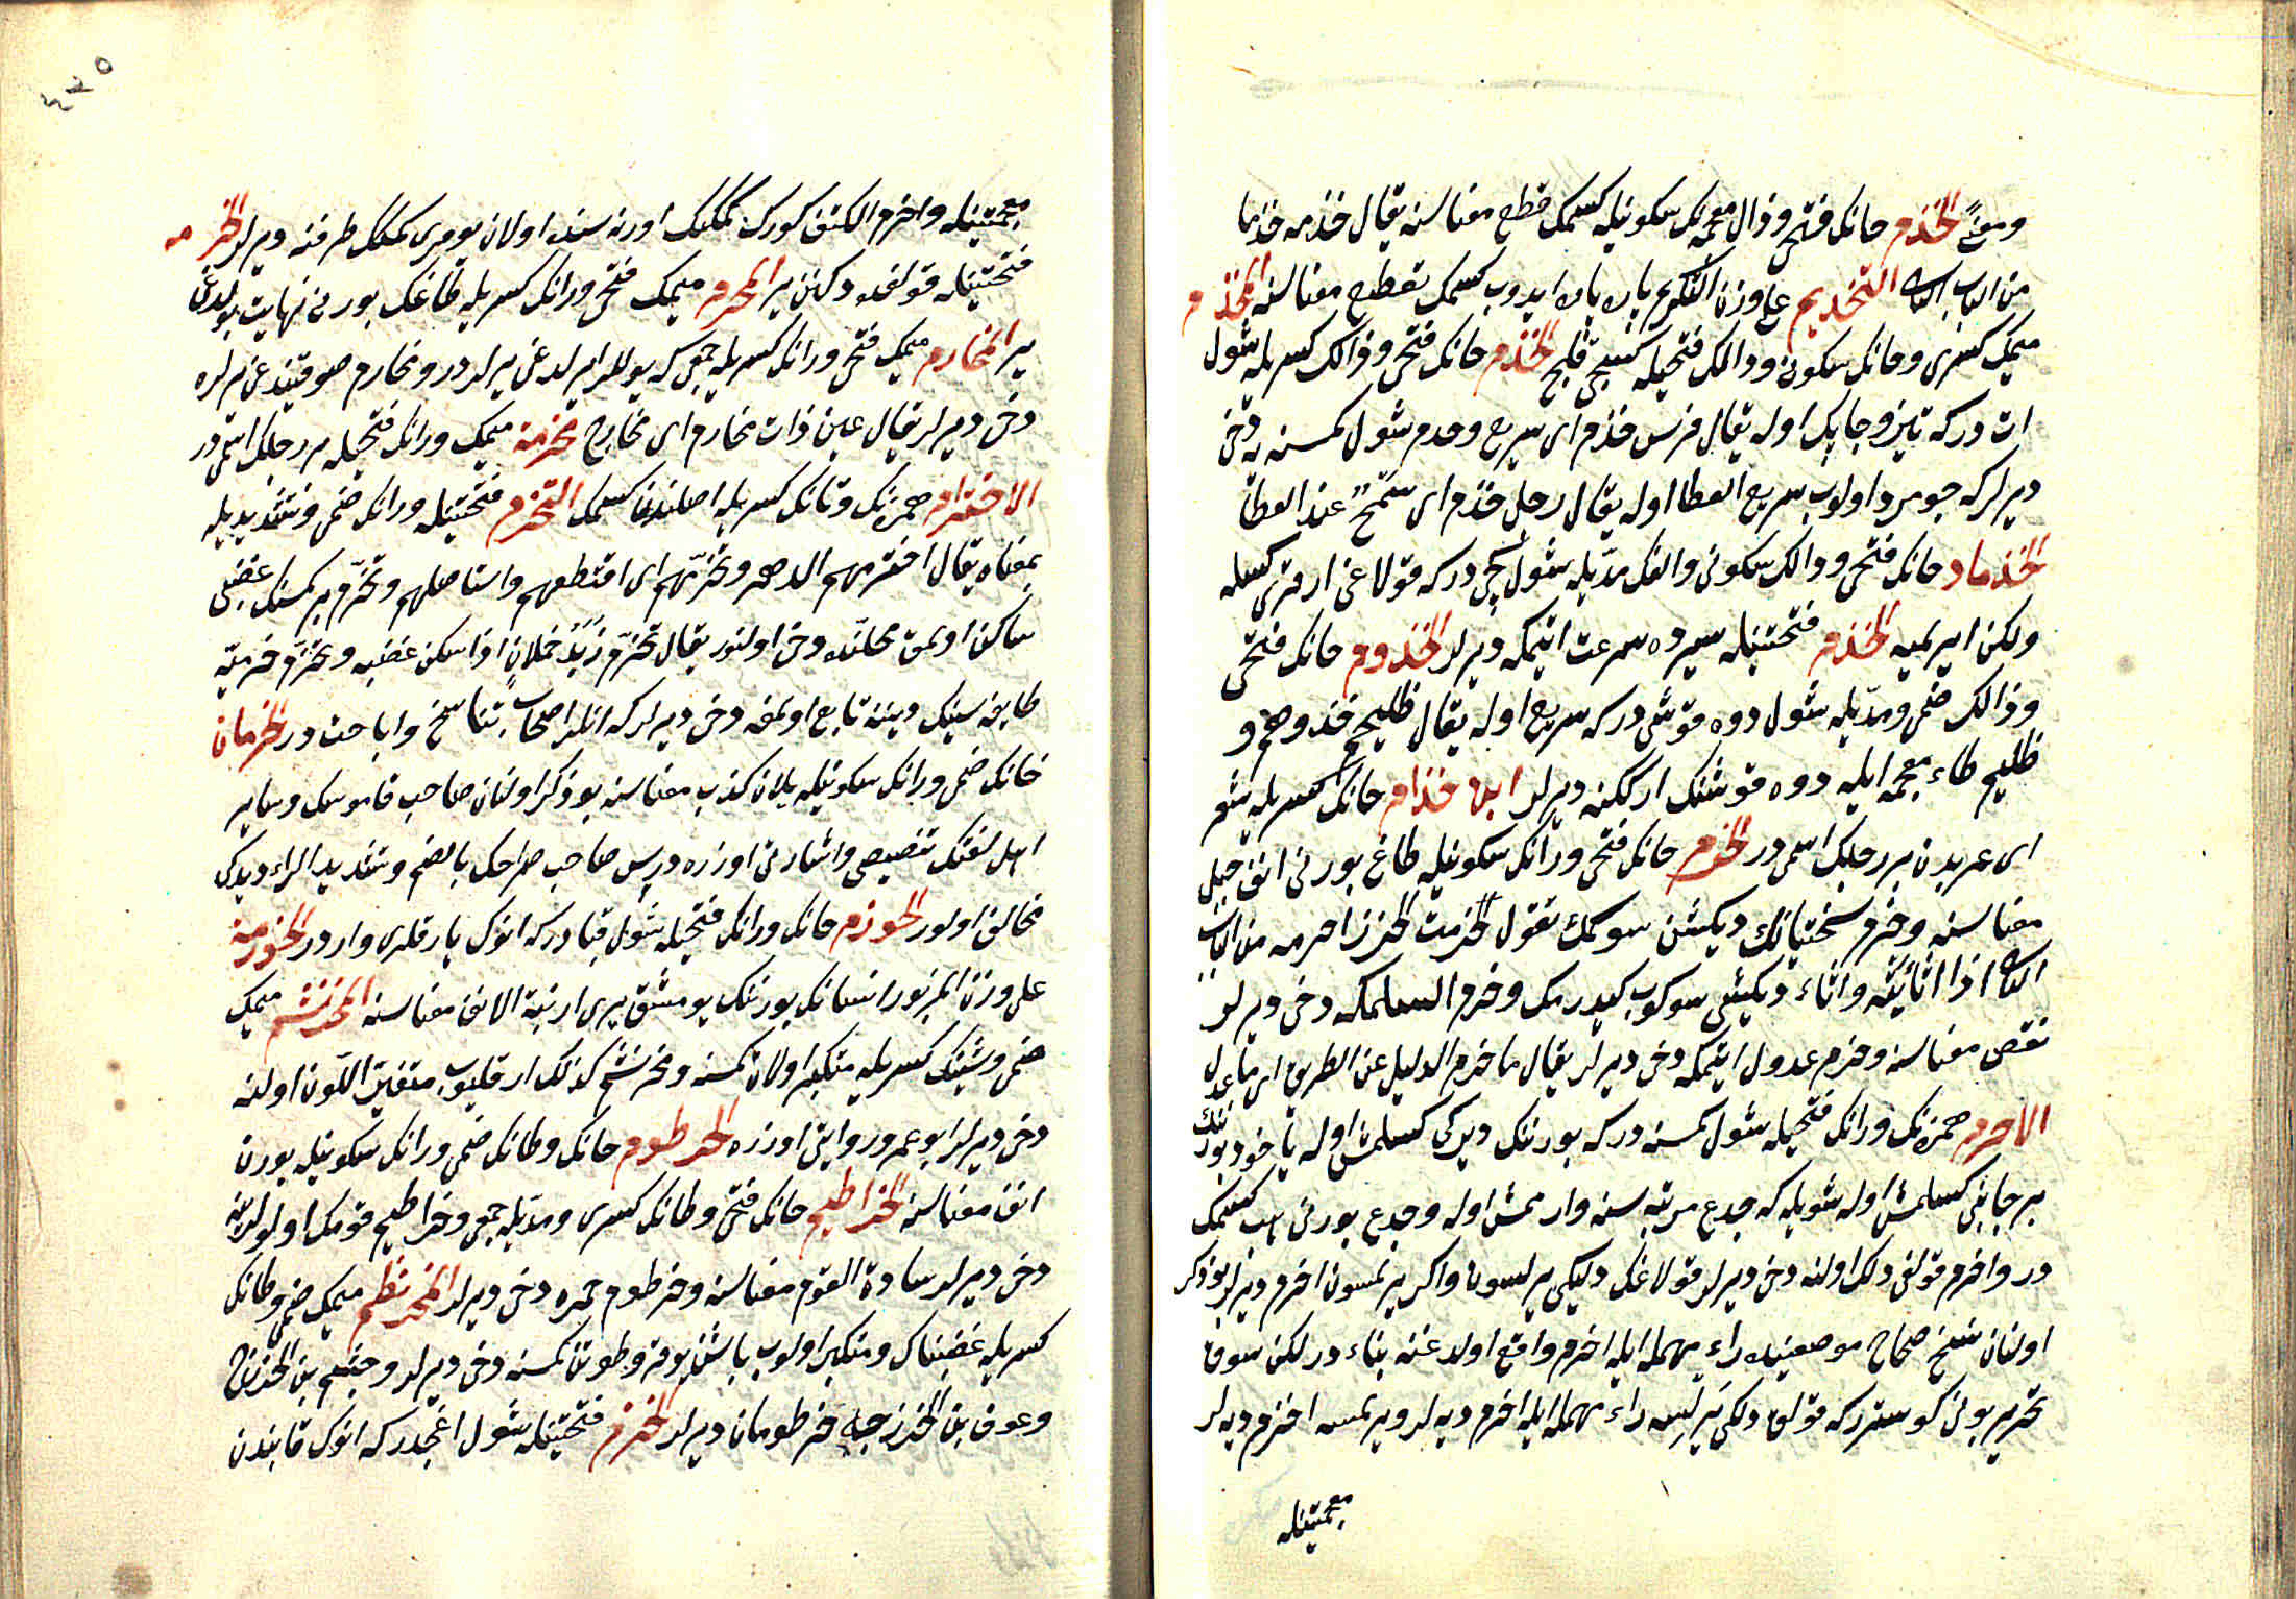 ومعنًى الخذم خانك فتحى وذال معجمه نك سكونيله كسمك قطع معناسنه يقال خذمه خذما
من الباب الثانى التخذيم على وزن التكريم پاره پاره ايدوب كسمك تقطيع معناسنه المخذم
ميمك كسرى وخانك سكونى وذالك فتحيله كسيجى قلج الخذم خانك فتحى وذالك كسريله شول
ات دركه تيز وچاپك اوله يقال فرس خذم اى سريع وخذم شول كمسنه يه دخى
ديرلر كه جومرد اولوب سريع العطا اوله يقال رجل خذم اى سمح عند العطا
الخذماء خانك فتحى وذالك سكونى والفك مديله شول كچى دركه قولاغى ارقرى كسيله
ولكن ايرلميه الخذم فتحتينله سيرده سرعت ايتمكه ديرلر الخذوم خانك فتحى
وذالك ضمى ومديله شول دوه قوشى دركه سريع اوله يقال ظليم خذوم و
ظليم ظاء معجمه ايله دوه قوشنك ارككنه ديرلر ابن خذام خانك كسريله شعر
اى عربدن بر رجلك اسمى در الخرم خانك فتحى ورانك سكونيله طاغ بورنى انف جبل
معناسنه وخرم سختيانك ديكشن سوكمك تقول خرمت الخرز اخرمه من الباب
الثانى اذا اثأيته واثاء ديكيشى سوكوب كيدرمك وخرم اكسلمكه دخى ديرلر
نقص معناسنه وخرم عدول ايتمكه دخى ديرلر يقال ما خرم الدليل عن الطريق اى ما عدل
الاخرم همزه نك ورانك فتحيله شول كمسنه دركه بورننك ديركى كسلمش اوله ياخود بورننك
بر جانبى كسلمش اوله شويله كه جدع مرتبه سنه وارممش اوله وجدع بورنى كسمك
در واخرم قولاغى دلك اولنه دخى ديرلر قولاغك دليكى يرلسون واكر يرلمسون اخرم ديرلر بو ذكر
اولنان نسخ صحاح موضعنده راء مهمله ايله اخرم واقع اولدغنه بناء در لكن سوق
تحرير بونى كوستررکه قولاق دلكى يرلسه راء مهمله ايله اخرم ديه لر ويرلمسه اخزم ديه لر
معجمتينله
٤٢٥
معجمتينله واخرم الكتف كورك كمكنك اورته سنده اولان يومرى كمكك طرفنه ديرلر الخرمه
فتحتينله قولاقده دلنن ير المخرم ميمك فتحى ورانك كسريله طاغك بورنى نهايت بولدغى
ير المخارم ميمك فتحى ورانك كسريله جمعى كه يوللر ايرلدغى يرلردر ومخارم صو قيندغى يرلره
دخى ديرلر يقال عين ذات مخارم اى مخارج مخرمه ميمك ورانك فتحيله بر رجلك اسمى در
الاخترام همزه نك وتانك كسريله اصلندن كسمك التخرم فتحتينله ورانك ضمى وتشديديله
بمعناه يقال اخترمهم الدهر وتخرّمهم اى اقتطعهم واستاصلهم وتخرّم بر كمسنك غضبى
ساكن اولمق محلنده دخى اولنور يقال تخرّم زبد فلان اذا سكن غضبه وتخرّم خرميه
طايفه سنك دينه تابع اولمغه دخى ديرلر كه انلر اصحاب تناسخ واباحت در الخرمان
خانك ضمى ورانك سكونيله يلان كذب معناسنه بو ذكر اولنان صاحب قاموسك وساير
اهل لغتك تنصيصى واشارتى اوزره دريس صاحب صراحك بالضم وتشديد الراء ديدكى
مخالف اولور الخورم خانك ورانك فتحيله شول قيادركه انوك يارقلرى واردر الخورمه
على وزن المزبور انسانك بورننك يومشق يرى ارنبة الانف معناسنه المخرنشم ميمك
ضمى وشينك كسريله متكبر اولان كمسنه ومخرنشم كذلك ارقليوب متغير اللون اولنه
دخى ديرلر ابو عمرو روايتى اوزره الخرطوم خانك وطانك ضمى ورانك سكونيله بورن
انف معناسنه الخراطيم خانك فتحى وطانك كسرى ومديله جمعى وخراطيم قومك اولولرينه
دخى ديرلر سادة القوم معناسنه وخرطوم خمره دخى ديرلر المخرنطم ميمك ضمى وطانك
كسريله غضبناك ومتكبر اولوب باشن يوقرو طوتن كمسنه دخى ديرلر وجشم بن الخزرج
وعوف بن الخزرجه خرطومان ديرلر الخزم فتحتينله شول اغجدركه انوك قابندن